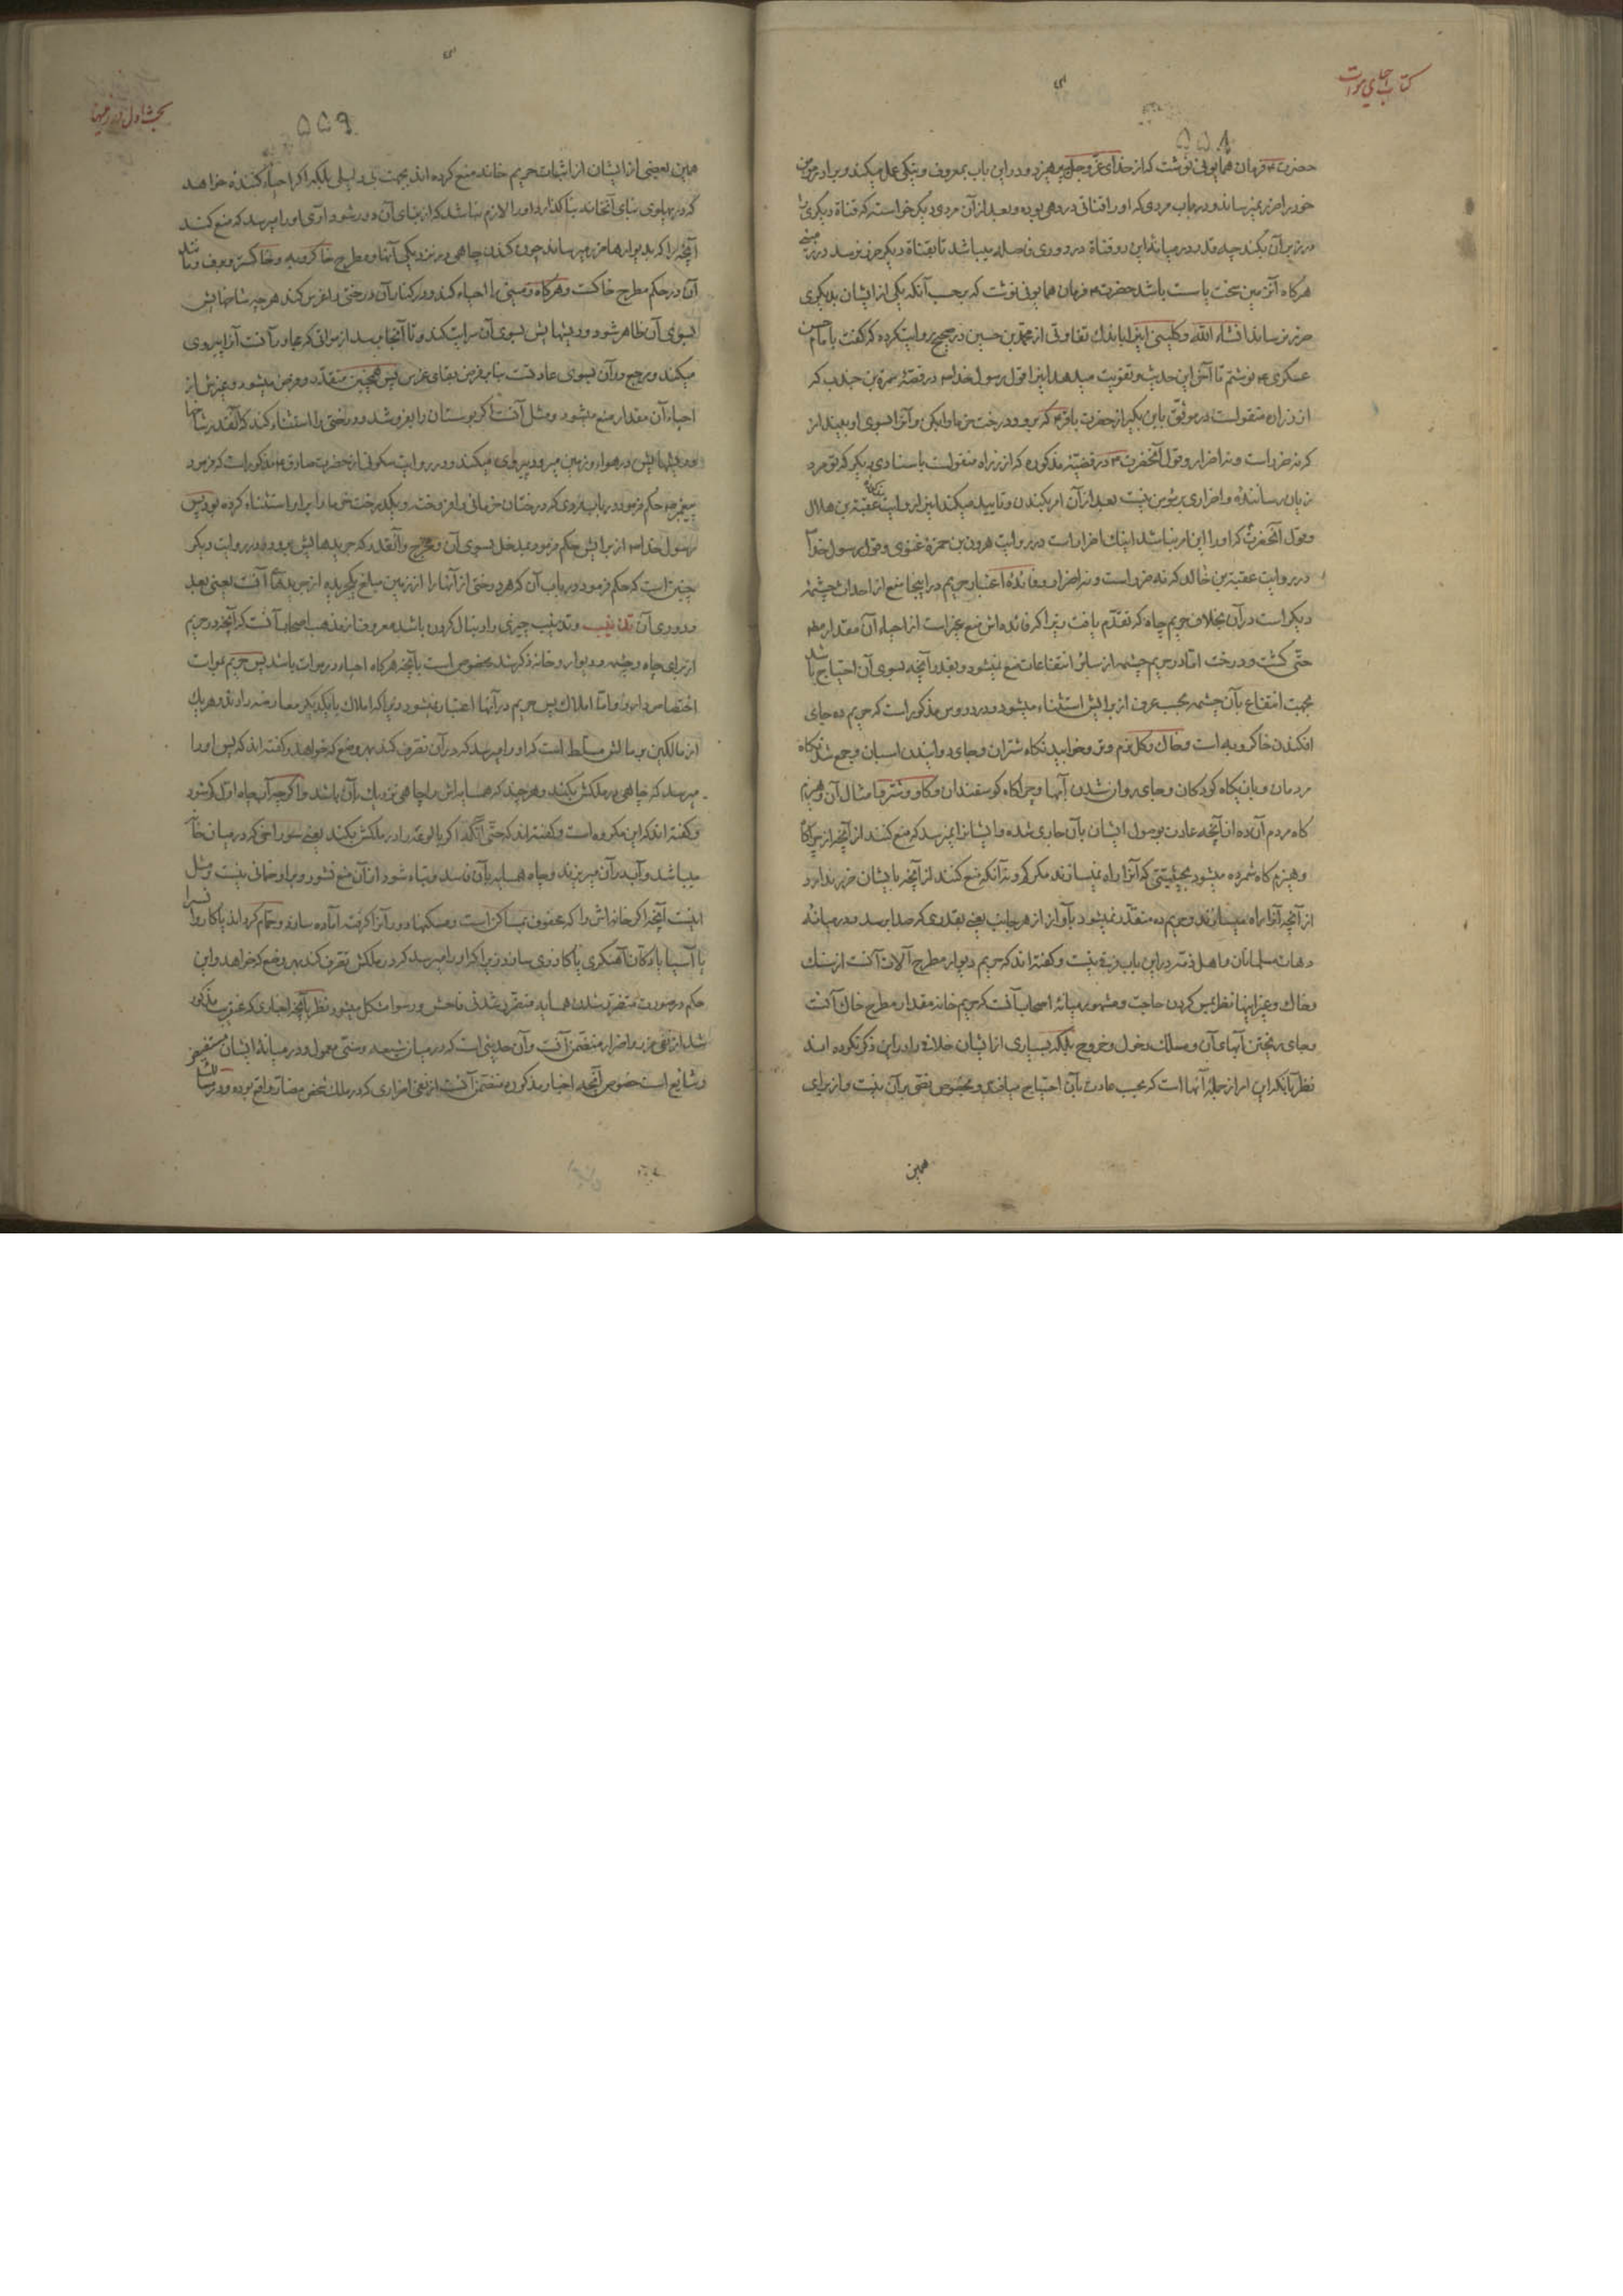 کتاب احیای موات
۵۵۸
حضرت ع فرمان همایونی نوشت که از خدای عزّ و جل بپرهیزد و در این باب بمعروف و نیکی عمل میکند و برادر مؤمن
خود را ضرر نمیرساند و در باب مردی که او را قناتی در دهی بوده و بعد از آن مردی دیگر خواسته که قناة دیگری را
در زیر آن بکند چه قدر در میانهٔ این دو قناة در دوری فاصله میباشد تا بقناة دیگر ضرر نرسد در زمینی
هرگاه آنزمین سخت یا سست باشد حضرت ع فرمان همایونی نوشت که بر حسب آنکه یکی از ایشان بدیگری
ضرر نرساند انشاء الله و کلینی اینرا باندک تفاوتی از محمد بن حسین در صحیح روایت کرده که گفت بامام حسن
عسکری ع نوشتم تا آخر این حدیث و تقویت میدهد اینرا قول رسول خدا ص در قصّهٔ سمرة بن جندب که
از زراره منقولست در موثّق بابن بکیر از حضرت باقر ع که برو و درخت خرما را بکن و آنرا بسوی او بینداز
که نه ضرر است و نه اضرار و قول آنحضرت ص در قضیّهٔ مذکوره که از زراره منقولست باسنادی دیگر که تو مرد
زیان رسانندهٔ و اضراری بر مؤمن نیست بعد از آن امر بکندن و تأیید میکند اینرا روایت عقبة بن هلال
و قول آنحضرت که او را این امر نباشد اینک اضرار است در روایت هرون بن حمزهٔ غنوی و قول رسول خدا ص
در روایت عقبة بن خالد که نه ضرر است و نه اضرار و فائدهٔ اعتبار حریم در اینجا منع از احداث چشمهٔ
دیگر است در آن بخلاف حریم چاه که تقدّم یافت زیرا که فائده‌اش منع غیر است از احیاء آن مقدار مط
حتّی کشت و درخت امّا در حریم چشمه از سائر انتفاعات منع نمیشود و بقدر آنچه بسوی آن احتیاج باشد
بجهت انتفاع بآن چشمه بحسب عرف از برایش استثناء میشود و در دروس مذکور است که حریم ده جای
افکندن خاکروبه است و خاک و گل نرم و تر و خوابیدنگاه شتران و جای دوانیدن اسبان و جمع شدنگاه
مردمان و بازیگاه کودکان و جای روان شدن آبها و چراگاه گوسفندان و گاو و شتر و امثال آن و هیزم
گاه مردم آن ده از آنچه عادت بوصول ایشان بآن جاری شده و ایشانرا نمیرسد که منع کنند از آنچه از چراگاه
و هیزم گاه شمرده میشود بحیثیّتی که آنرا راه نمیسازند مگر گاه و نه آنکه منع کنند از آنچه بایشان ضرر ندارد
از آنچه آنرا راه میسازند و حریم ده متقدّر نمیشود بآواز از هر جانب یعنی بقدری که صدا برسد و در میانهٔ
دهات مسلمانان و اهل ذمّه در این باب فرق نیست و گفته‌اند که حریم دیوار مطرح آلات آنست از سنگ
و خاک و غیر اینها نظر بمس کردن حاجت و مشهور میانهٔ اصحاب آنست که حریم خانه مقدار مطرح خاک آنست
و جای ریختن آبهای آن و مسلک دخول و خروج بلکه بسیاری از ایشان خلافی را در این ذکر نکرده‌اند
نظر بآنکه این امر از جملهٔ آنها است که بحسب عادت بآن احتیاج میافتد و بخصوص نصّی بر آن نیست و از برای
همین
بحث اول در زمینها
۵۵۹
همین بعضی از ایشان از اثبات حریم خانه منع کرده‌اند بجهت بی دلیلی بلکه اگر احیاء کنندهٔ خواهد
که در پهلوی بنای آنخانه بنا گذارد او را لازم نباشد که از بنای آن دور شود آری او را میرسد که منع کند
آنچه را که بدیوارها ضرر میرساند چون کندن چاهی در نزدیکی آنها و مطرح خاکروبه و خاکستر و برف و مانند
آن در حکم مطرح خاکست و هرگاه زمینی را احیاء کند و در کنار آن درختی را غرس کند هر چه شاخهایش
بسوی آن ظاهر شود و ریشهایش بسوی آن سرایت کند و تا آنجا رسد از مرافقی که عادت آنست آنرا پیروی
میکند و مرجع در آن بسوی عادتست بنا بر فرض بقای غرس پس همچنین متقدّر و فرض میشود و غیرش از
احیاء آن مقدار منع میشود و مثل آنست اگر بوستان را بفروشد و درختی را استثناء کند که آنقدر شاخها
و ریشهایش در هوا و زمین میرود پیروی میکند و در روایت سکونی از حضرت صادق ع مذکور است که فرمود
پیغمبر ص حکم فرمود در باب مردی که درختان خرمائی را فروخته و یکدرخت خرما را برابر استثناء کرده بود پس
رسول خدا ص از برایش حکم فرمود بمدخل بسوی آن و مخرج و آنقدر که جریدهایش میرود و در روایت دیگر
چنین است که حکم فرمود در باب آن که هر درختی از آنها را از زمین مبلغ یکجریده از جریدهای آنست یعنی بعد
و دوری آن تذنیب و تذنیب چیزی را دنبال کردن باشد معروف از مذهب اصحاب آنست که آنچه در حریم
از برای چاه و چشمه و دیوار و خانه ذکر شد مخصوص است بآنچه هرگاه احیاء در موات باشد پس حریم بموات
اختصاص دارد و امّا املاک پس حریم در آنها اعتبار نمیشود زیرا که املاک با یکدیگر معارضه دارند و هر یک
از مالکین بر مالش مسلّط است که او را میرسد که در آن تصرف کند بهر وضع که خواهد و گفته‌اند که پس او را
میرسد که چاهی در ملکش بکند و هر چند که همسایه‌اش را چاهی نزدیک بآن باشد و اگر چه آب چاه اوّل کم شود
و گفته‌اند که این مکروه است و گفته‌اند که حتّی آنکه اگر بالوعهٔ را در ملکش بکند یعنی سوراخی که در میان خانه
میباشد و آب در آن میریزند و چاه همسایه بآن فاسد و تباه شود از آن منع نشود و بر او ضمانی نیست و مثل
اینست آنچه اگر خانه‌اش را که محفوف بمساکن است و مسکنها دور آنرا گرفته آماده سازد و حمّام کرداند یا کاروانسرا
یا آسیا یا دکّان آهنگری یا گازری سازد زیرا که او را میرسد که در ملکش تصرف کند بهر وضع که خواهد و این
حکم در صورت متضرّر شدن همسایه متضرّر شدنی فاحش و رسوا مشکل میشود نظر بآنچه اخباری که عنقریب مذکور
شد از نفی ضرر و اضرار متضمّن آنست و آن حدیثی است که در میان شیعه و سنّی معمول و در میانهٔ ایشان مستفیض
و شایع است خصوص آنچه اخبار مذکوره متضمّن آنست از نفی اضراری که در ملک شخص مضار واقع بوده و در مسالک